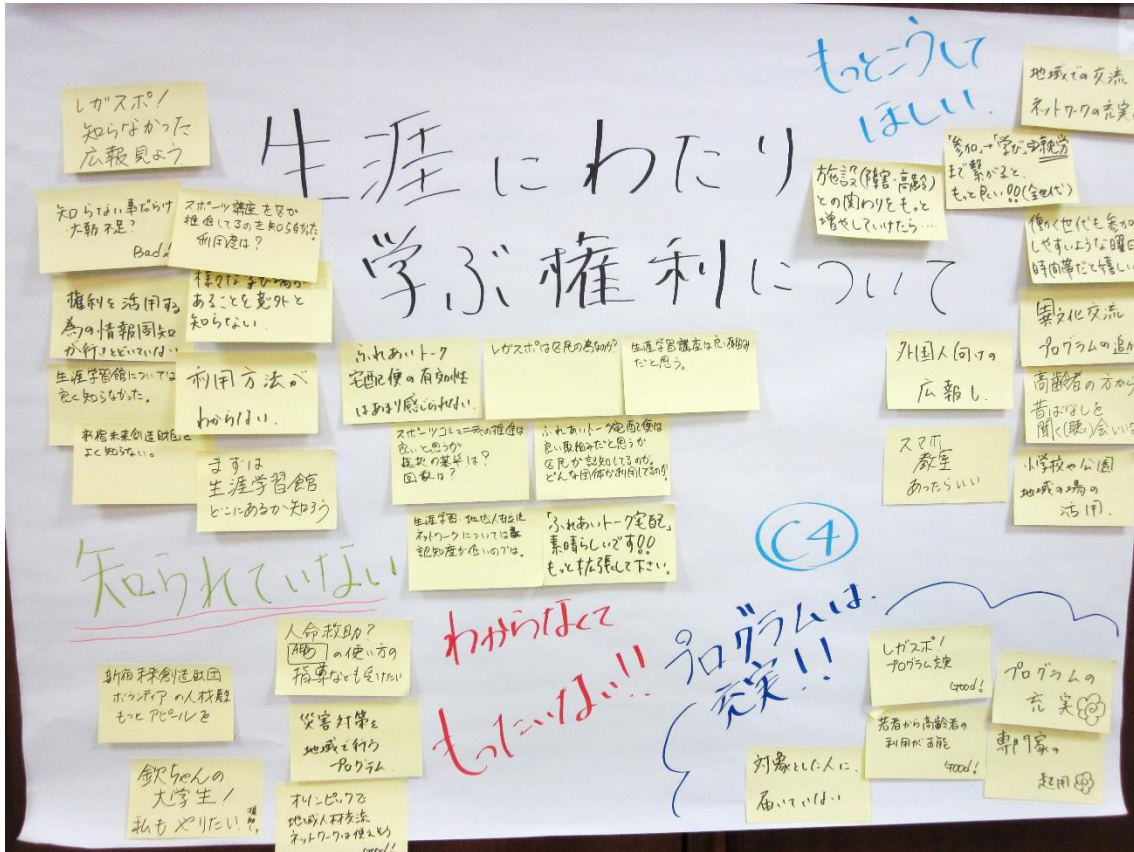 生涯にわたり
学ぶ権利について
もっとこうして
ほしい.
レガスポ!
知らなかった
広報見よう
知らない事だらけ
Bad!
スポーツ講座を
推進してるのを知らなかった
利用度は?
あることを意外と
知らない.
権利を活用する
為の情報周知
が行きとどいていない
生涯学習館については
良く知らなかった。
利用方法が
わからない.
新宿未来創造財団を
よく知らない。
まずは
生涯学習館
どこにあるか知ろう
知られていない
ふれあいトーク
宅配便の有効性
はあまり感じられない.
レガスポは区民の為なのか?
生涯学習講座は良い取組み
だと思う。
スポーツコミュニティの推進は
良いと思うが
基準は?
回数は?
ふれあいトーク宅配便は
良い取組みだと思うが
区民が認知してるのか。
どんな団体が利用してるのか?
生涯学習・地域人材交流
ネットワークについては
認知度が低いのでは。
「ふれあいトーク宅配」
素晴らしいです!!
もっと拡張して下さい。
地域での交流
ネットワークの充実
「参加」→「学び」→就労
まで繋がると、
もっと良い!!(全世代)
施設(障害・高齢)
との関わりをもっと
増やしていけたら....
働く世代も参加
しやすいような曜日
時間帯だと嬉しい
異文化交流
プログラムの追加
外国人向けの
広報し.
高齢者の方から
昔ばなしを
聞く(聴く)会いいな
スマホ
教室
あったらいい
小学校や公園
地域の場の
活用.
C4
わからなくて
もったいない!!
プログラムは.
充実!!
人命救助?
AED の使い方の
指導なども受けたい
新宿未来創造財団
ボランティアの人材募集
もっとアピールを
災害対策を
地域で行う
プログラム.
欽ちゃんの
大学生!
私もやりたい.
オリンピックで
地域人材交流
ネットワークは使えそう
Good!
レガスポ!
プログラム充実
Good!
若者から高齢者の
利用が可能
Good!
プログラムの
充実
専門家の
起用
対象とした人に.
届いていない